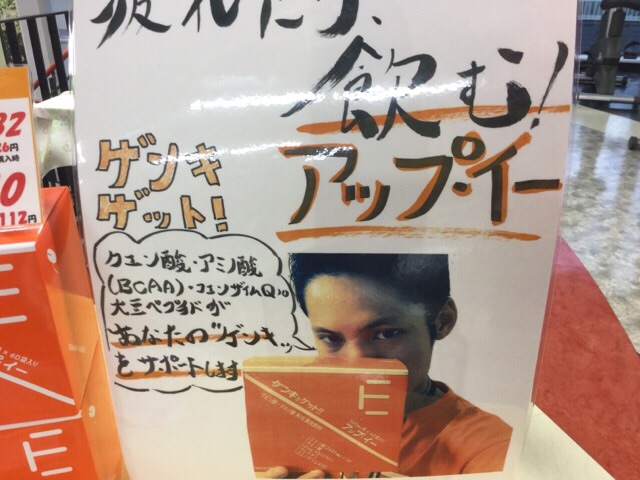 疲れたら、
飲む!
アップ・イー
ゲンキ
ゲット!
クエン酸・アミノ酸
(BCAA)・コエンザイムQ10
大豆ペプチドが
あなたの"ゲンキ"
をサポートします
ゲンキをゲット!!
アップ・イー
112円